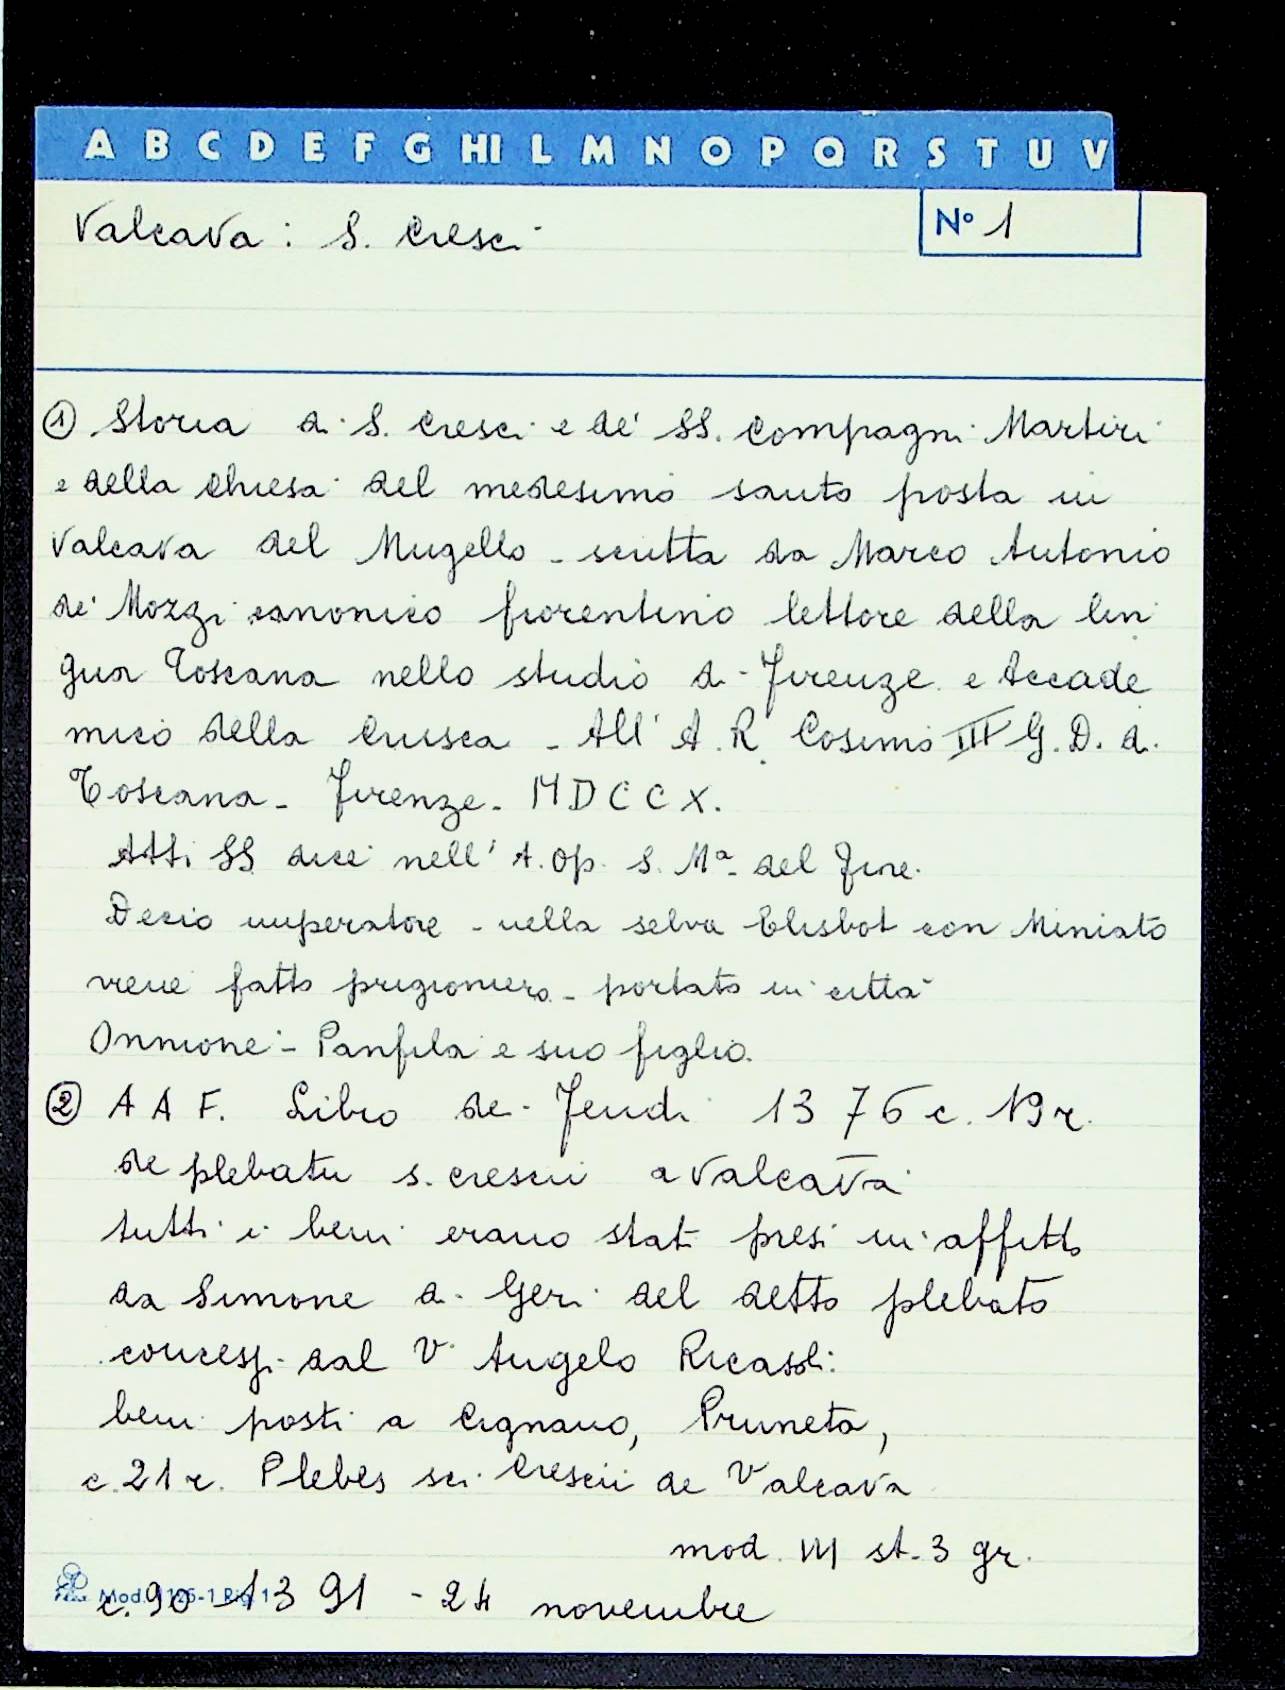 A B C D E F G HI L M N O P Q R S T U V
Valcava: S. Cresci
N° 1
① Storia di S. Cresci e de' SS. Compagni Martiri
e della Chiesa del medesimo santo posta in
Valcava del Mugello - scritta da Marco Antonio
de' Mozzi canonico fiorentino lettore della lin
gua Toscana nello studio di Firenze e Accade
mico della Crusca - All' A. R. Cosimo III G. D. di
Toscana - Firenze - MDCCX.
Atti SS dice nell' A. Op. S. Mª del Fiore.
Decio imperatore - nella selva Elisbot con Miniato
viene fatto prigioniero - portato in città
Onnione - Panfila e suo figlio.
② A A F. Libro dei Feudi 1376 c. 19 r.
de plebatu s. crescii a Valcava
tutti i beni erano stati presi in affitto
da Simone di Geri del detto plebato
concessi dal V. Angelo Ricasoli:
beni posti a Cignano, Pruneta,
c. 21 r. Plebes sci. Crescii de Valcava
mod. VII st. 3 gr.
c. 90 - 1391 - 24 novembre